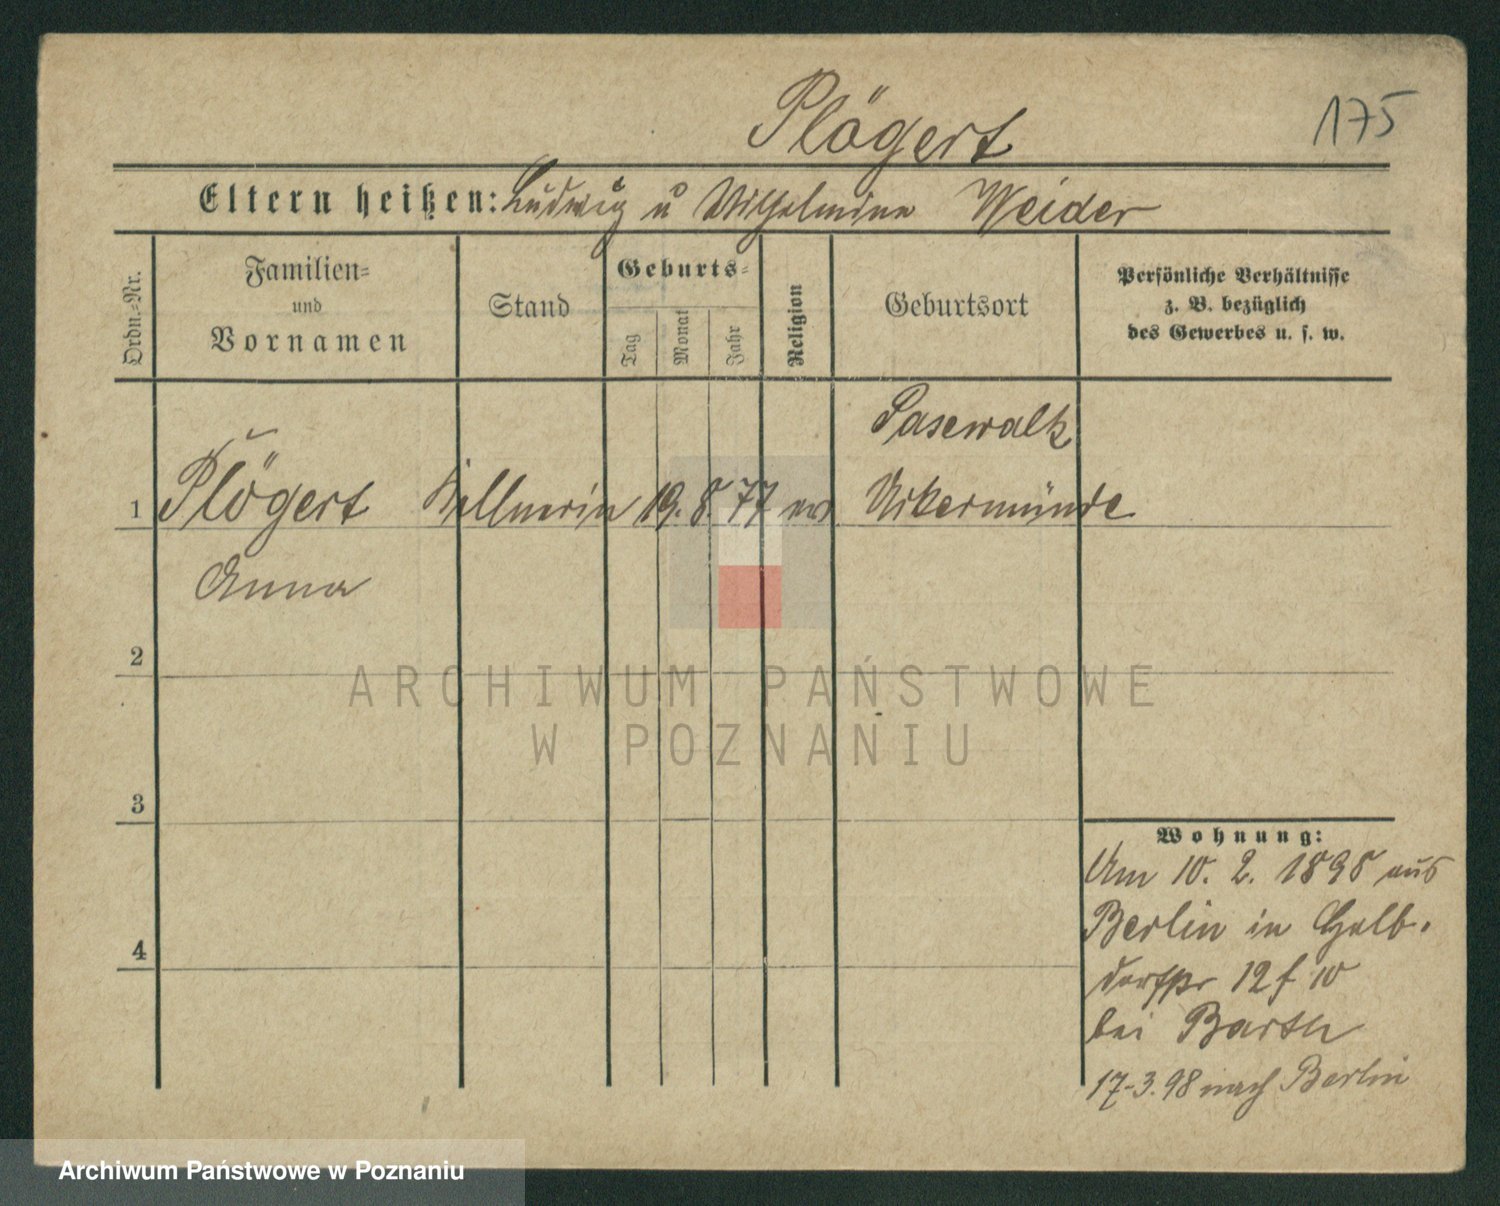 Plögert
175
Eltern heißen: Ludwig u Wilhelmine Weider
Ordn.=Nr.
Familien=
und
Vornamen
Stand
Geburts=
Tag
Monat
Jahr
Religion
Geburtsort
Persönliche Verhältnisse
z. B. bezüglich
des Gewerbes u. s. w.
Pasewalk
1 Plögert Kellnerin 19. 8. 77 ev Ukermünde
Anna
2
ARCHIWUM PAŃSTWOWE
W POZNANIU
3
4
Wohnung:
Am 10. 2. 1898 aus
Berlin in Halb-
dorfstr 12 f 10
bei Barth
17-3.98 nach Berlin
Archiwum Państwowe w Poznaniu